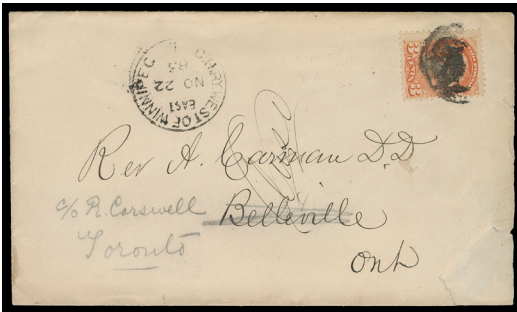 C.P.RY. WEST OF WINNIPEG
EAST
NO 22
Rev A. Carman D.D
c/o R. Carswell
Belleville
Toronto
Ont